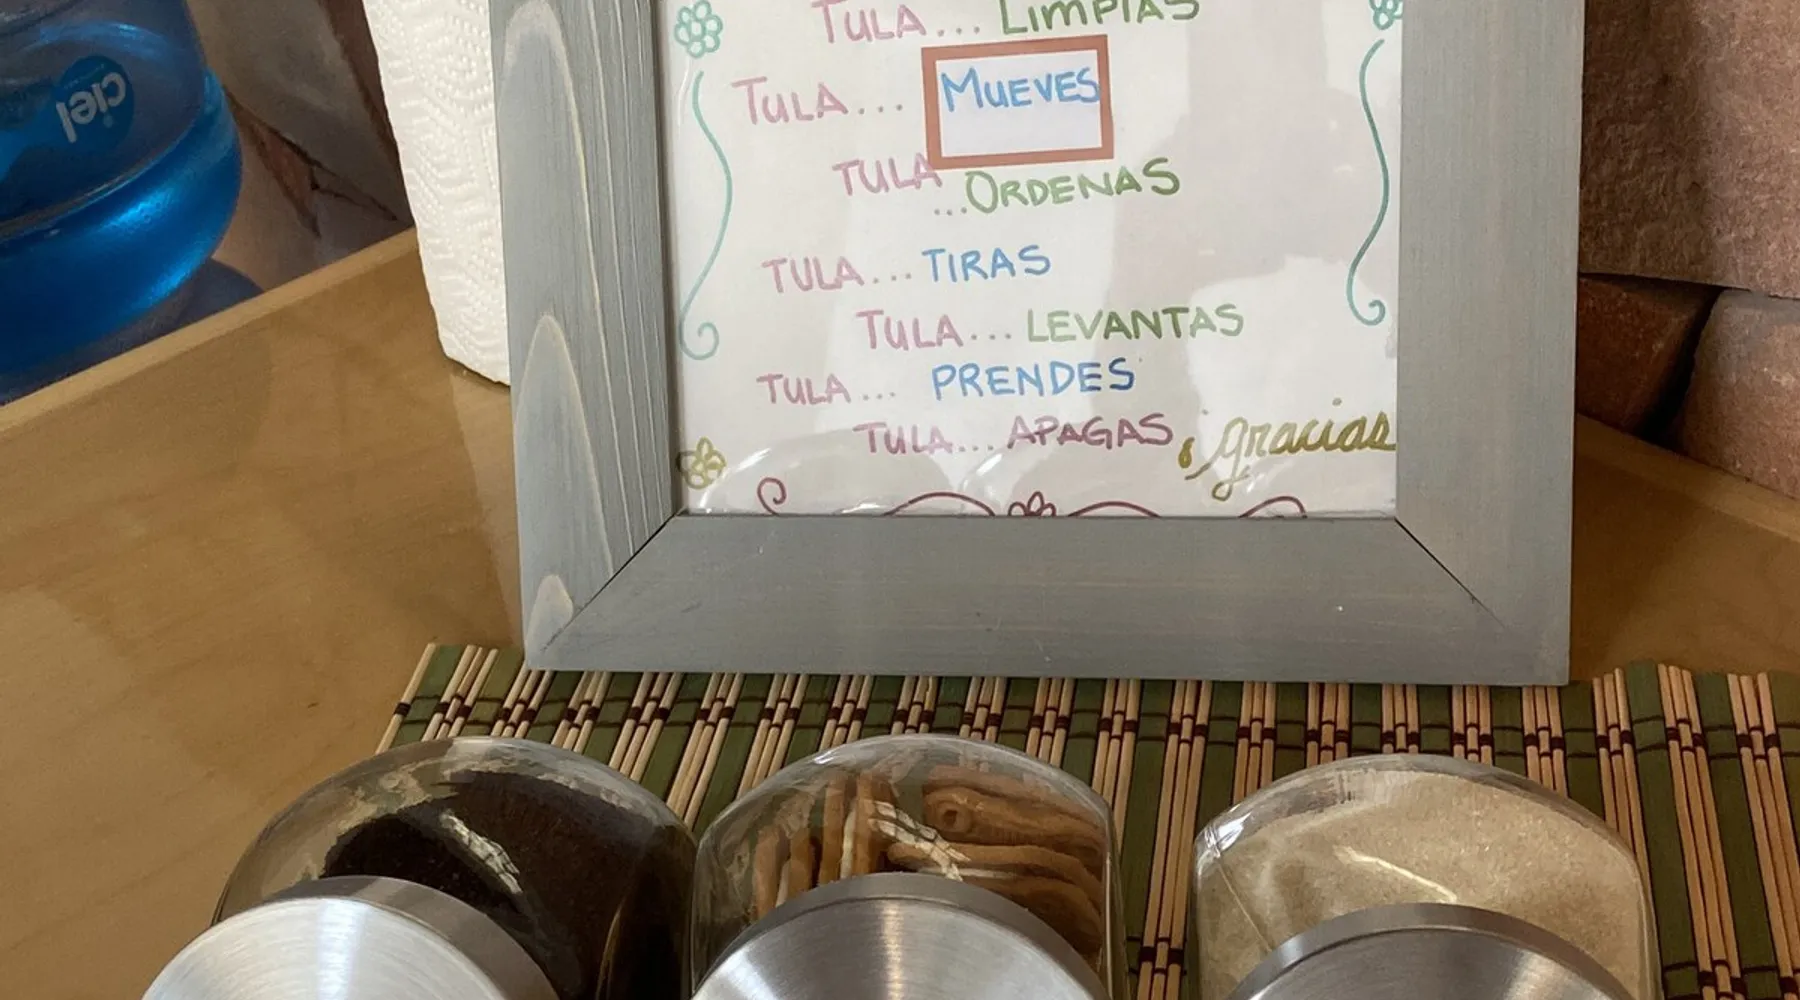 ciel
TULA... LIMPIAS
TULA... MUEVES
TULA ...ORDENAS
TULA...TIRAS
TULA...LEVANTAS
TULA... PRENDES
TULA...APAGAS, ¡gracias